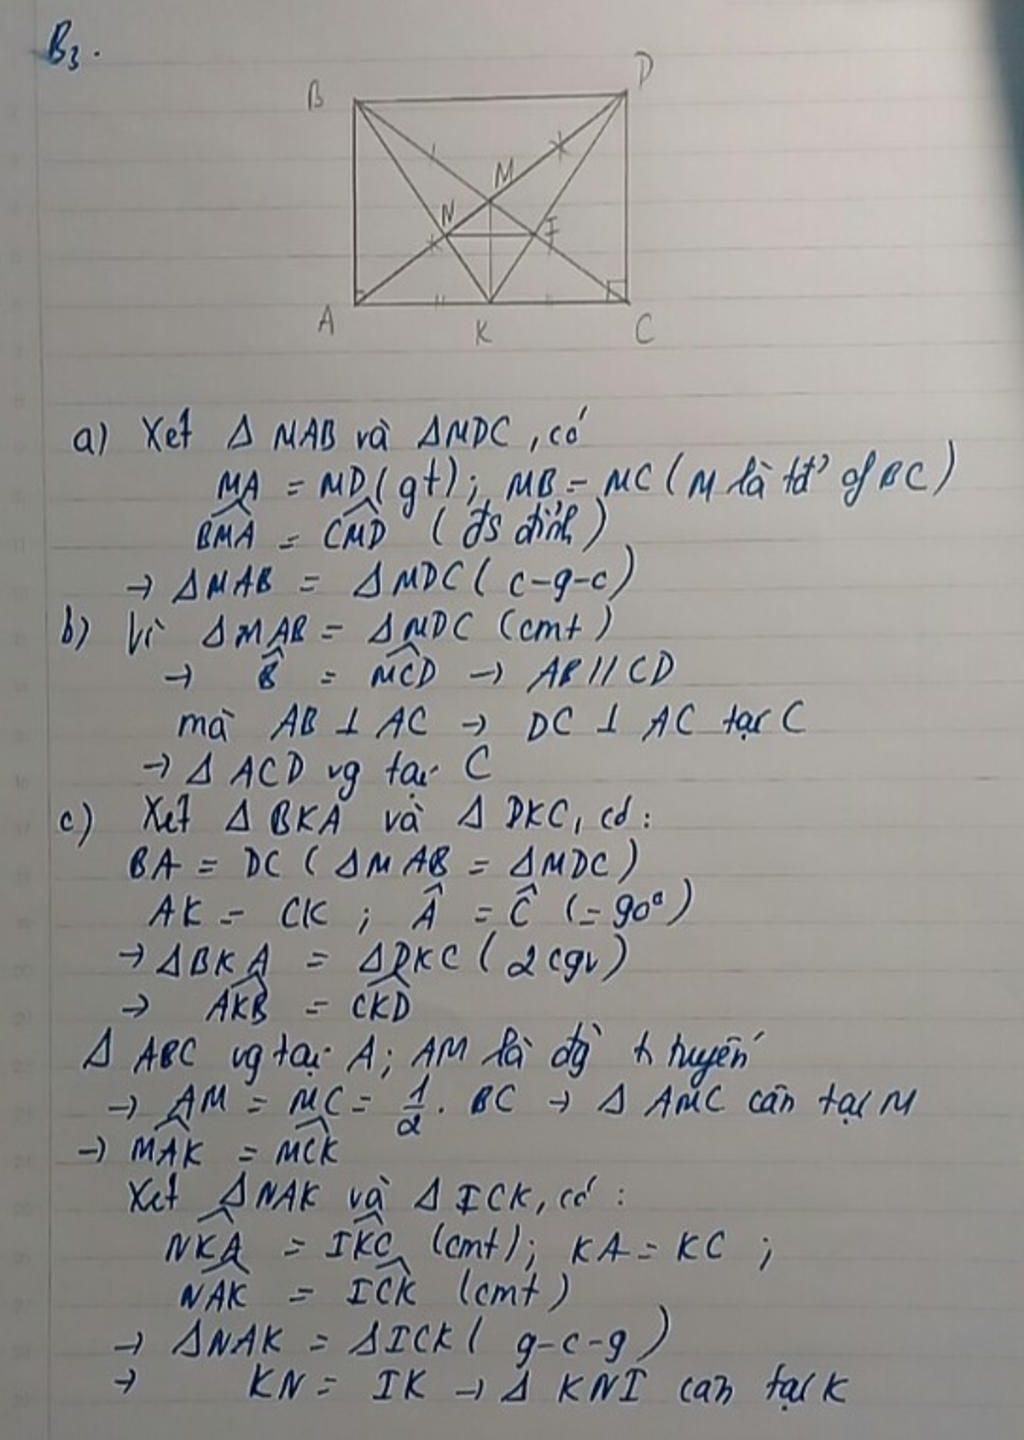 B3.
B
D
M
N
I
A
K
C
a) Xét Δ MAB và ΔMDC, có
MA = MD (gt); MB = MC (M là tđ' of BC)
BMA = CMD (đs đỉnh)
→ ΔMAB = ΔMDC (c-g-c)
b) Vì ΔMAB = ΔMDC (cmt)
→ B̂ = MCD → AB // CD
mà AB ⊥ AC → DC ⊥ AC tại C
→ Δ ACD vg tại C
c) Xét Δ BKA và Δ DKC, có:
BA = DC (ΔMAB = ΔMDC)
AK = CK ; Â = Ĉ (= 90°)
→ ΔBKA = ΔDKC (2cgv)
→ AKB = CKD
Δ ABC vg tại A; AM là đg tr tuyến
→ AM = MC = 1/2 . BC → Δ AMC cân tại M
→ MAK = MCK
Xét ΔNAK và Δ ICK, có :
NKA = IKC (cmt); KA = KC ;
NAK = ICK (cmt)
→ ΔNAK = ΔICK (g-c-g)
→ KN = IK → Δ KNI cân tại K